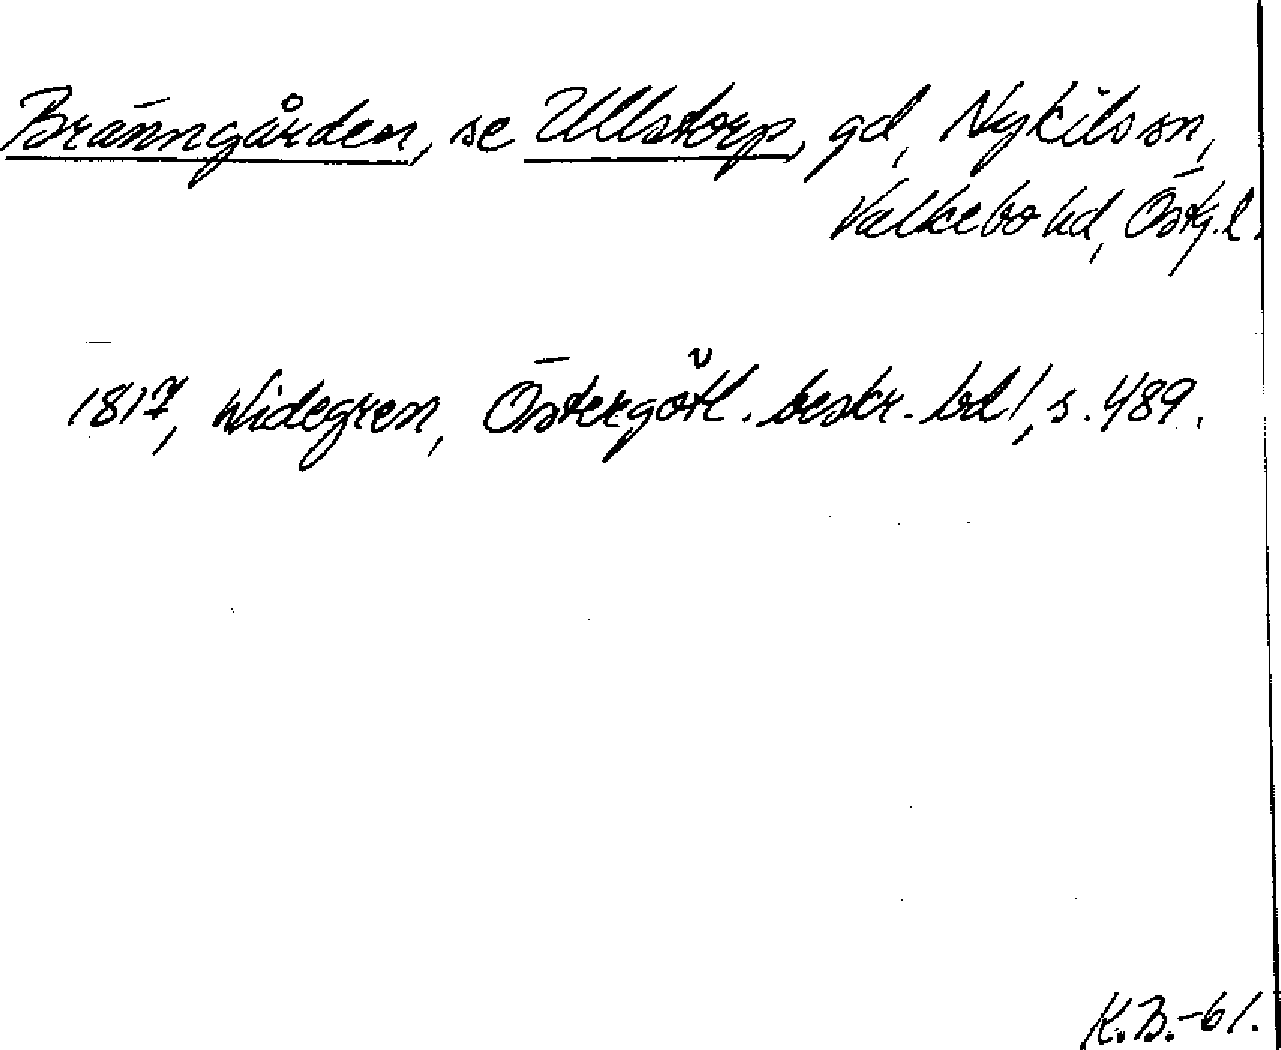 Bränngården, se Ullstorp, gd, Nykils sn,
Valkebo hd, Östg. l.
1817, Widegren, Östergötl. beskr. bd 1, s. 489.
K.B.-61.